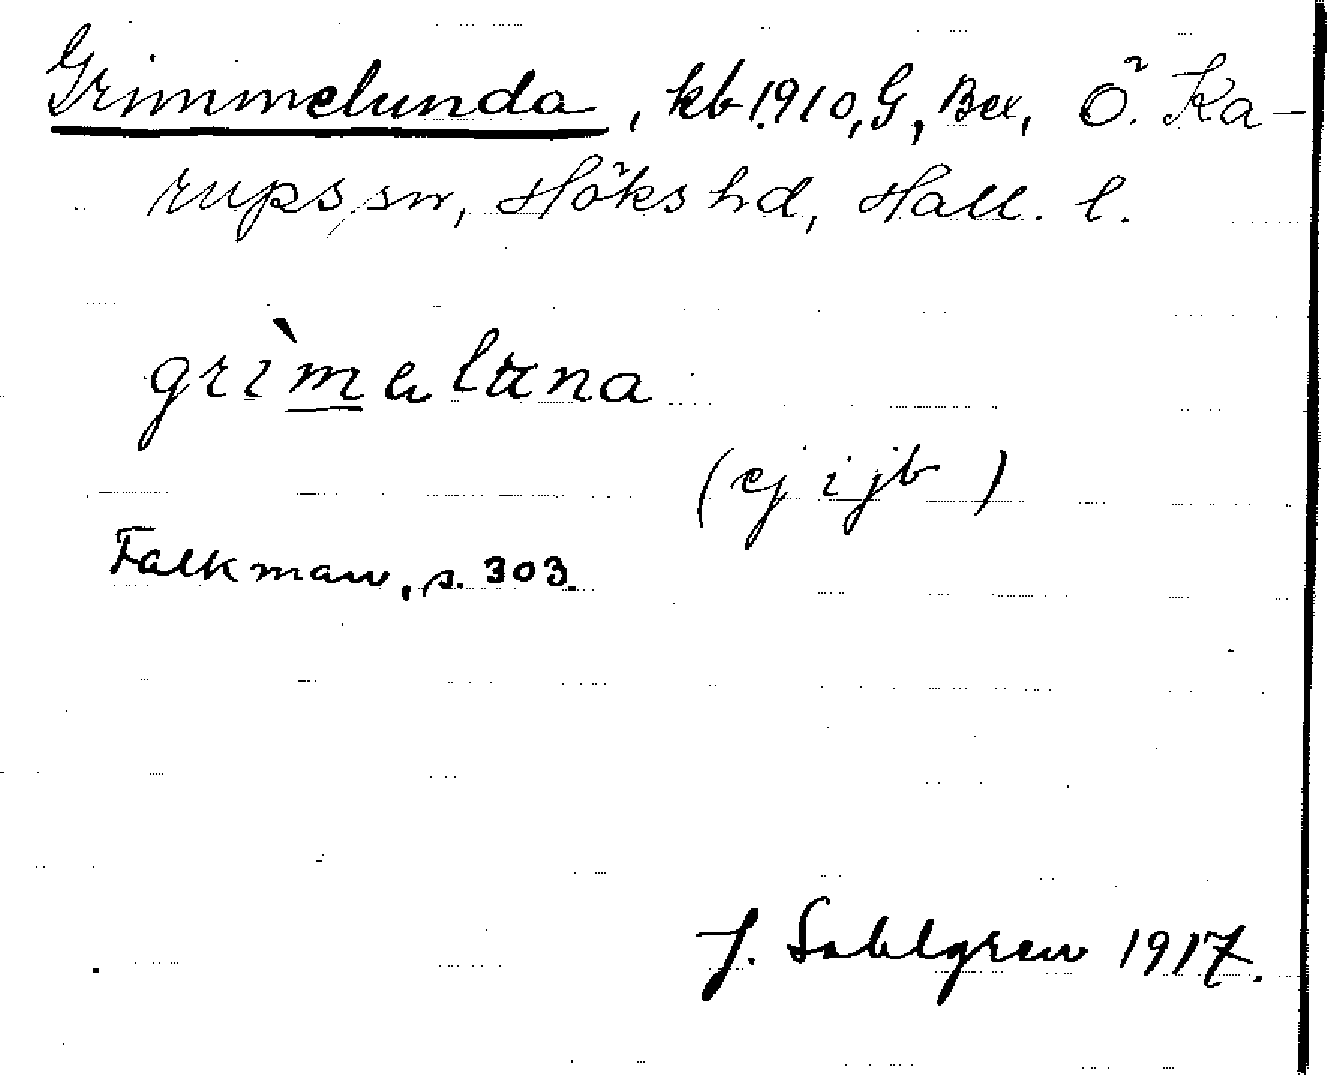 Grimmelunda, kb 1910, G, Bex, Ö. Ka-
rups sn, Höks hd, Hall. l.
grìmalᵫna
(ej i jb )
Falkman, s. 303.
J. Sahlgren 1917.